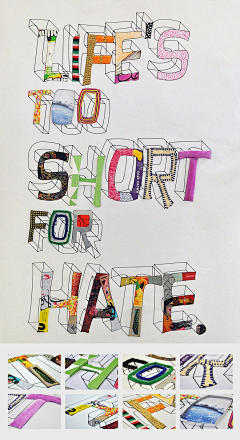 LIFE'S
TOO
SHORT
FOR
HATE.